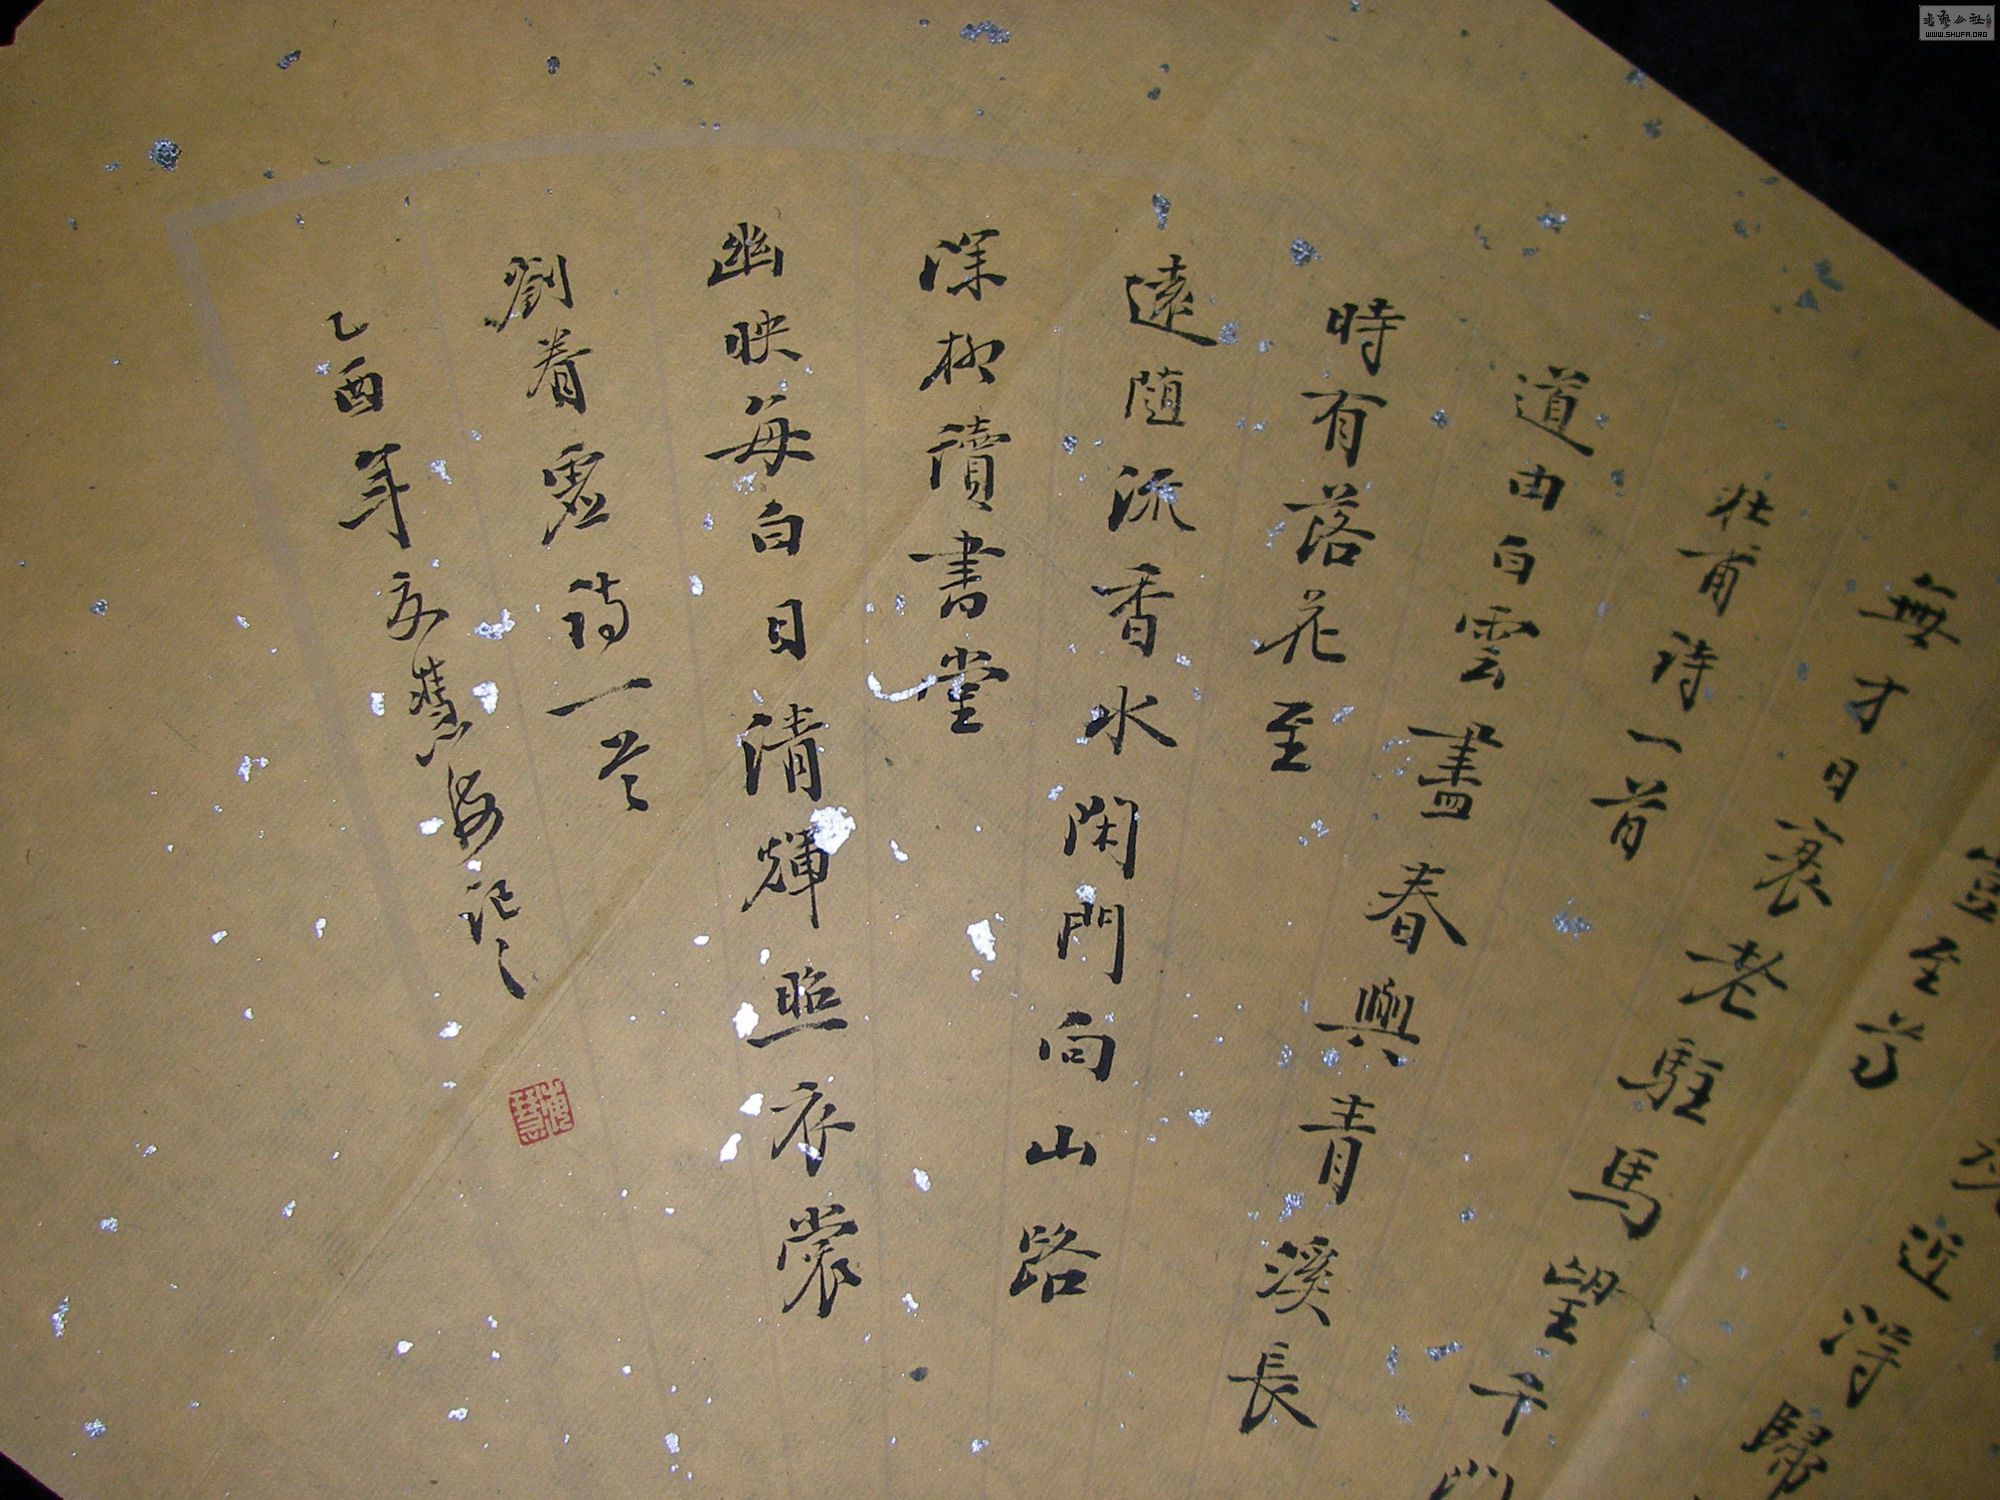 近得歸
豈至尊
無才日衰老駐馬望千門
杜甫詩一首
道由白雲盡春與青溪長
時有落花至
遠隨流香水閑門向山路
深柳讀書堂
幽映每白日清輝照衣裳
劉眘虛詩一首
乙酉年慧海記之
书艺公社
WWW.SHUFA.ORG